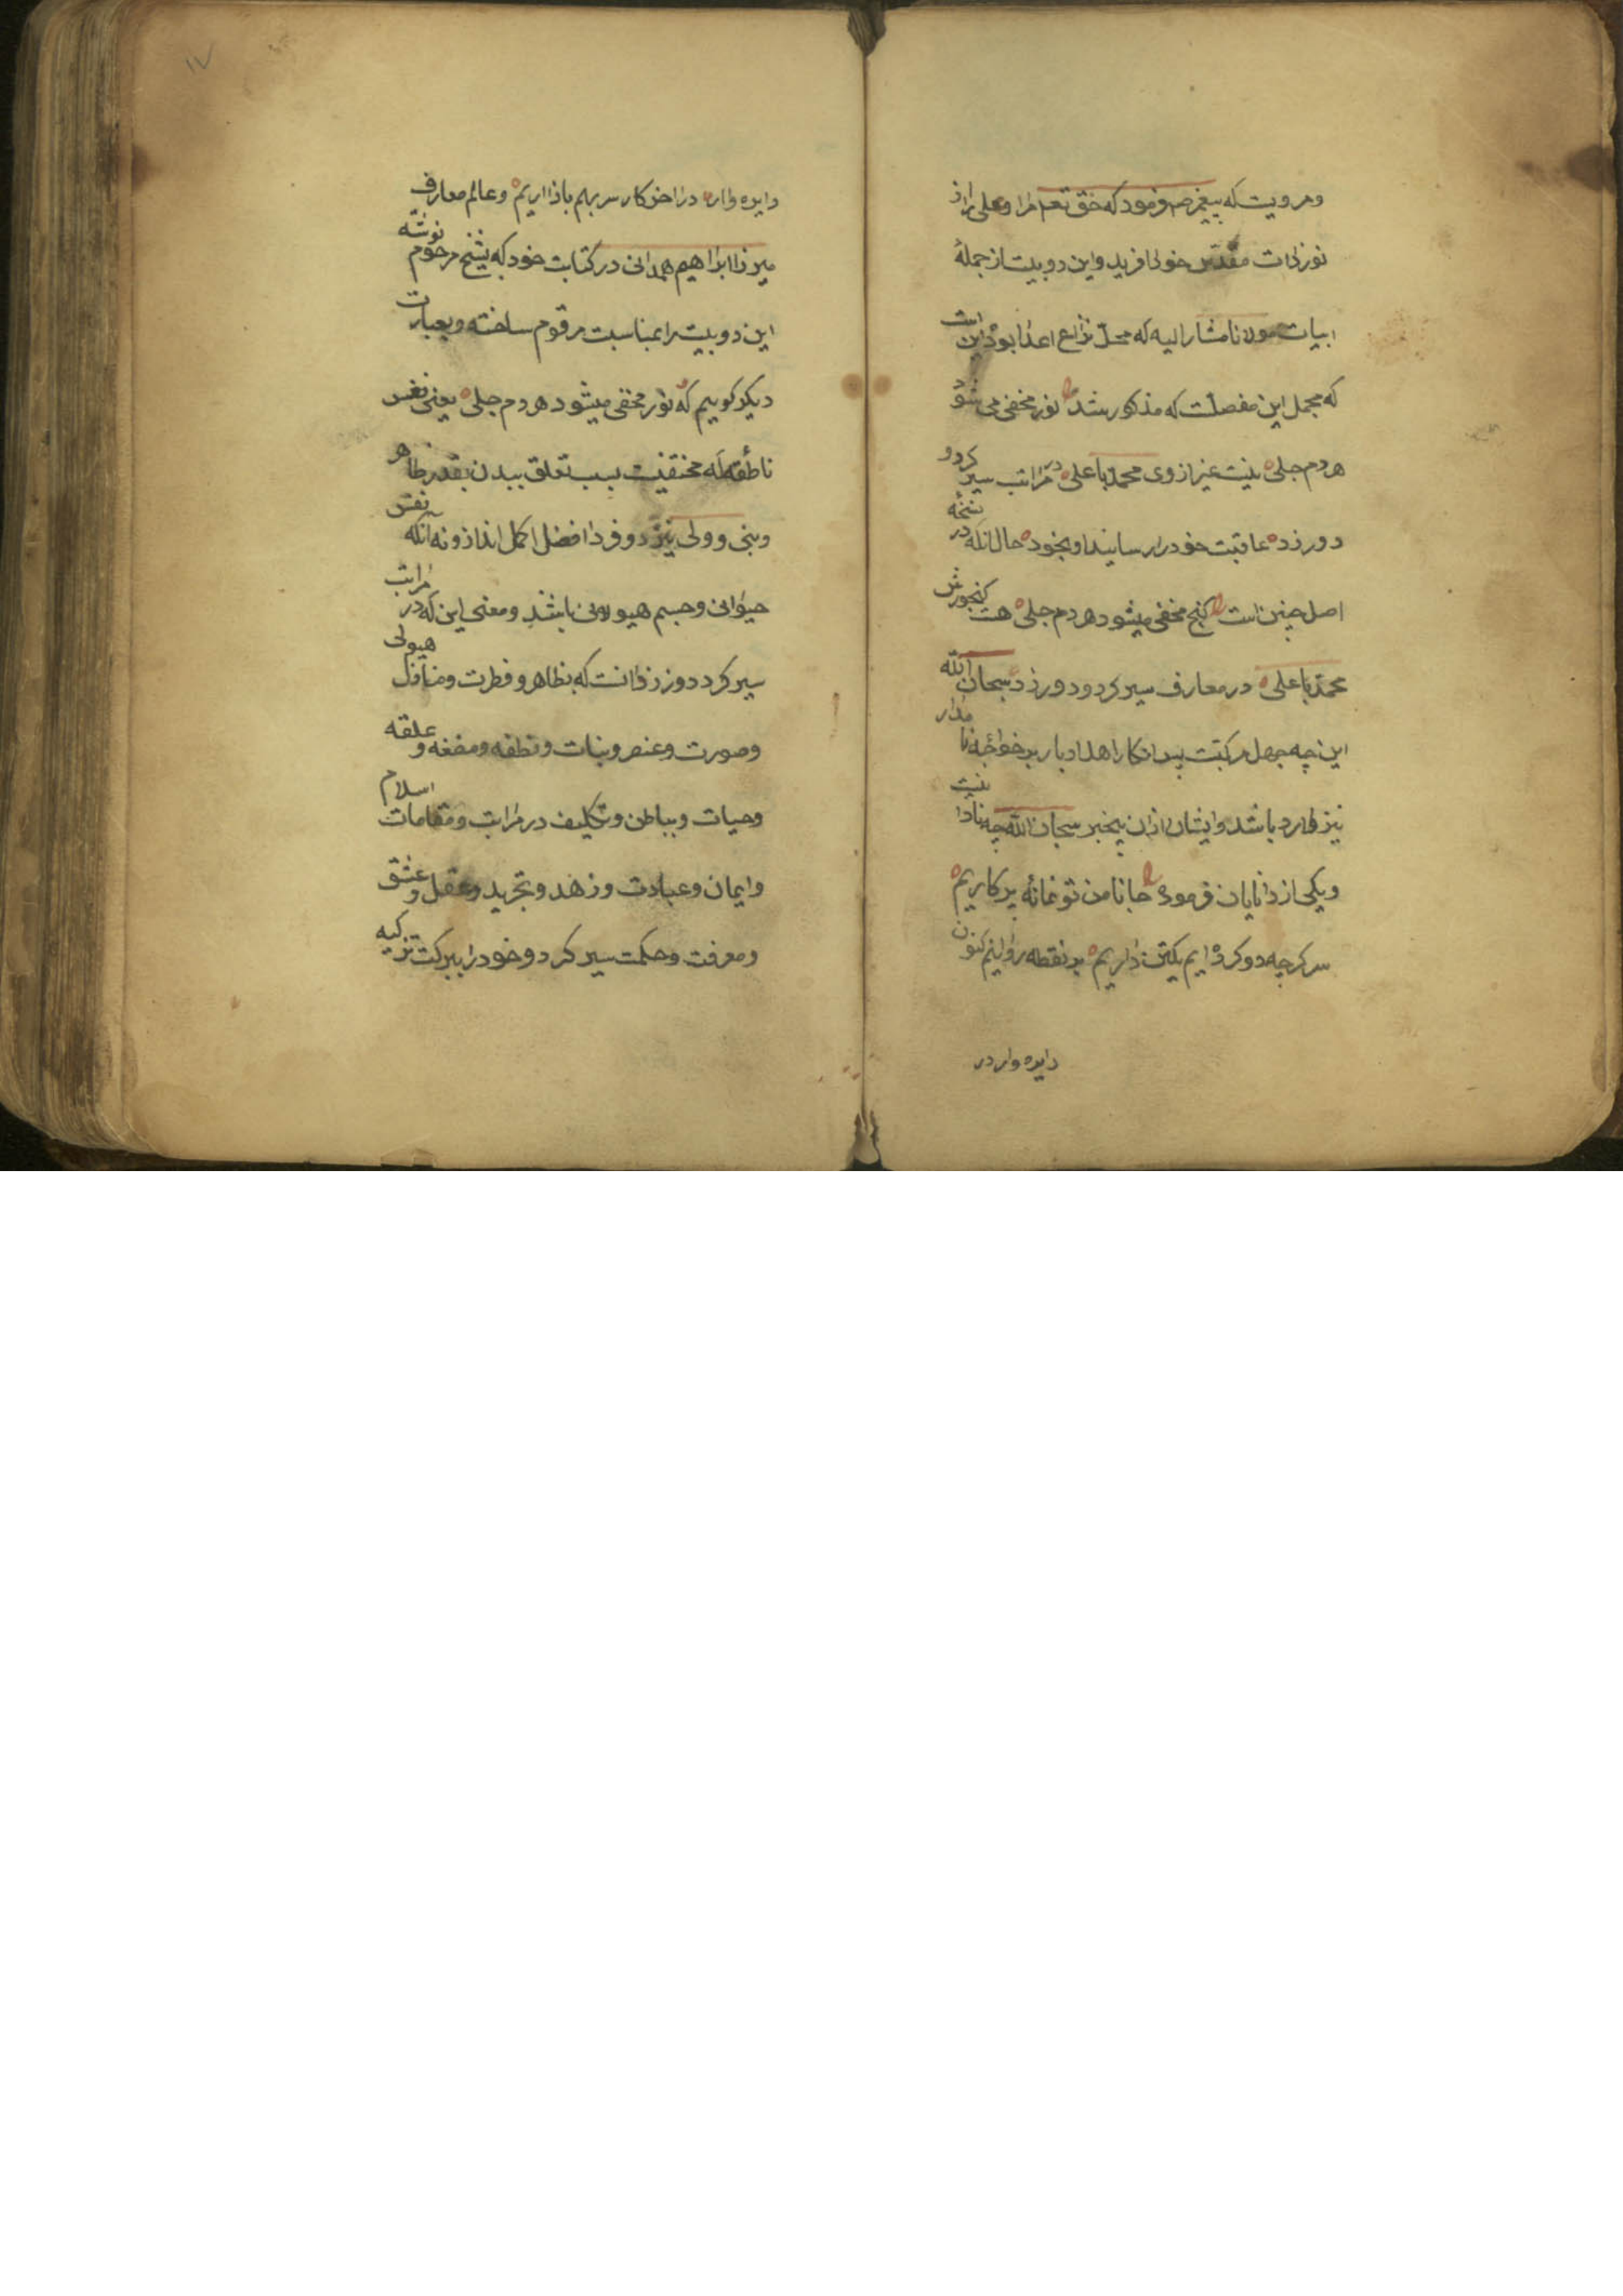 ومرویست که پیغمبر ص فرمود که حق تعم مرا و علی را از
نور ذات مقدس خود افرید و این دو بیت از جملهٔ
ابیات مولانا مشار الیه که محل نزاع اعدا بود این است
که مجمل این مفصلست که مذکور شد نور مخفی می شود
هر دم جلی نیست غیر از وی محمد با علی در مراتب سیر کرد و
دور زد عاقبت خود را رسانید او بخود حال انکه در نسخه
اصل چنین است کنج مخفی میشود هر دم جلی هست کنجورش
محمد با علی در معارف سیر کرد و دور زد سبحان الله
این چه جهل مرکبت بر خواجه نا مدار
نیز وارد باشد و ایشان ازان بیخبر سبحان الله چه نیست
ویکی از دانایان فرموده جانا من تو نمانهٔ پرکاریم
سر کرچه دو کرده ایم یکتن داریم بر نقطه روانیم کنون
دایره وار در
۱۷
دایره وار در اخر کار سر بهم باز اریم و عالم معارف
میرزا ابراهیم همدانی در کتابت خود که بشیخ مرحوم نوشته
این دو بیت را بمناسبت مرقوم ساخته و بعبارت
دیکر کوییم که نور مخفی میشود هر دم جلی یعنی نفس
ناطقه که مخفیست بسبب تعلق ببدن بقدر ظاهر
ونبی و ولی نیز دو فرد افضل اکمل اند از و نه انکه نفس
حیوانی و جسم هیولانی باشد و معنی این که در مراتب
سیر کرد دور زد انست که بظاهر و فطرت و منازل هیولی
وصورت و عنصر و نبات و نطفه و مضغه و علقه
وحیات و بباطن و تکلیف در مراتب و مقامات اسلام
وایمان و عبادت و زهد و تجرید و عقل و عشق
ومعرفت و حکمت سیر کرد و خود را ببرکت تزکیه